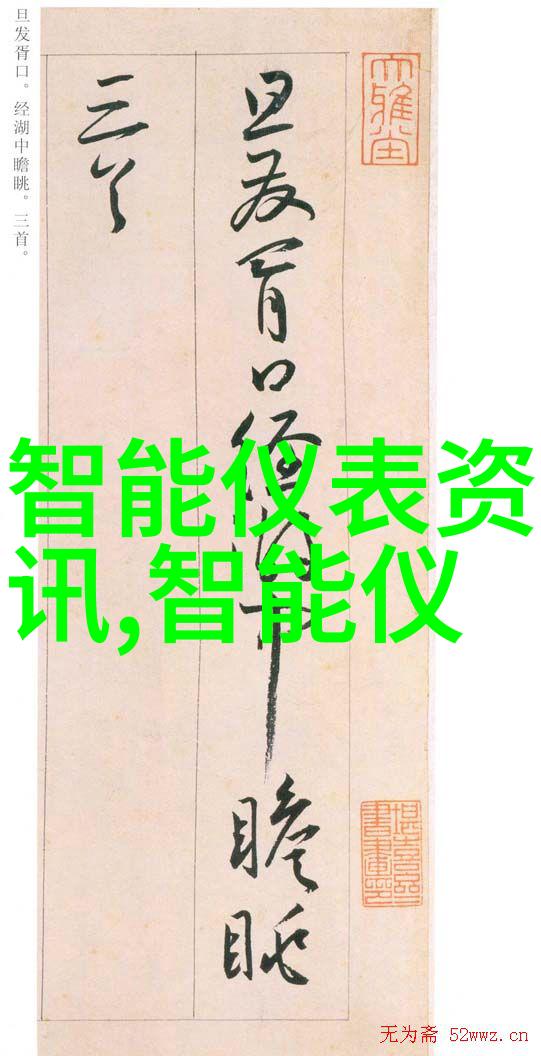 旦发胥口。经湖中瞻眺。三首。
旦发胥口经湖中瞻眺
三首
大雅堂
智能仪表资
讯,智能仪
无为斋 52wwz.cn